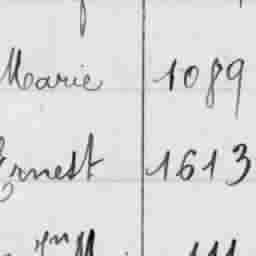 Marie 1089
Ernest 1613